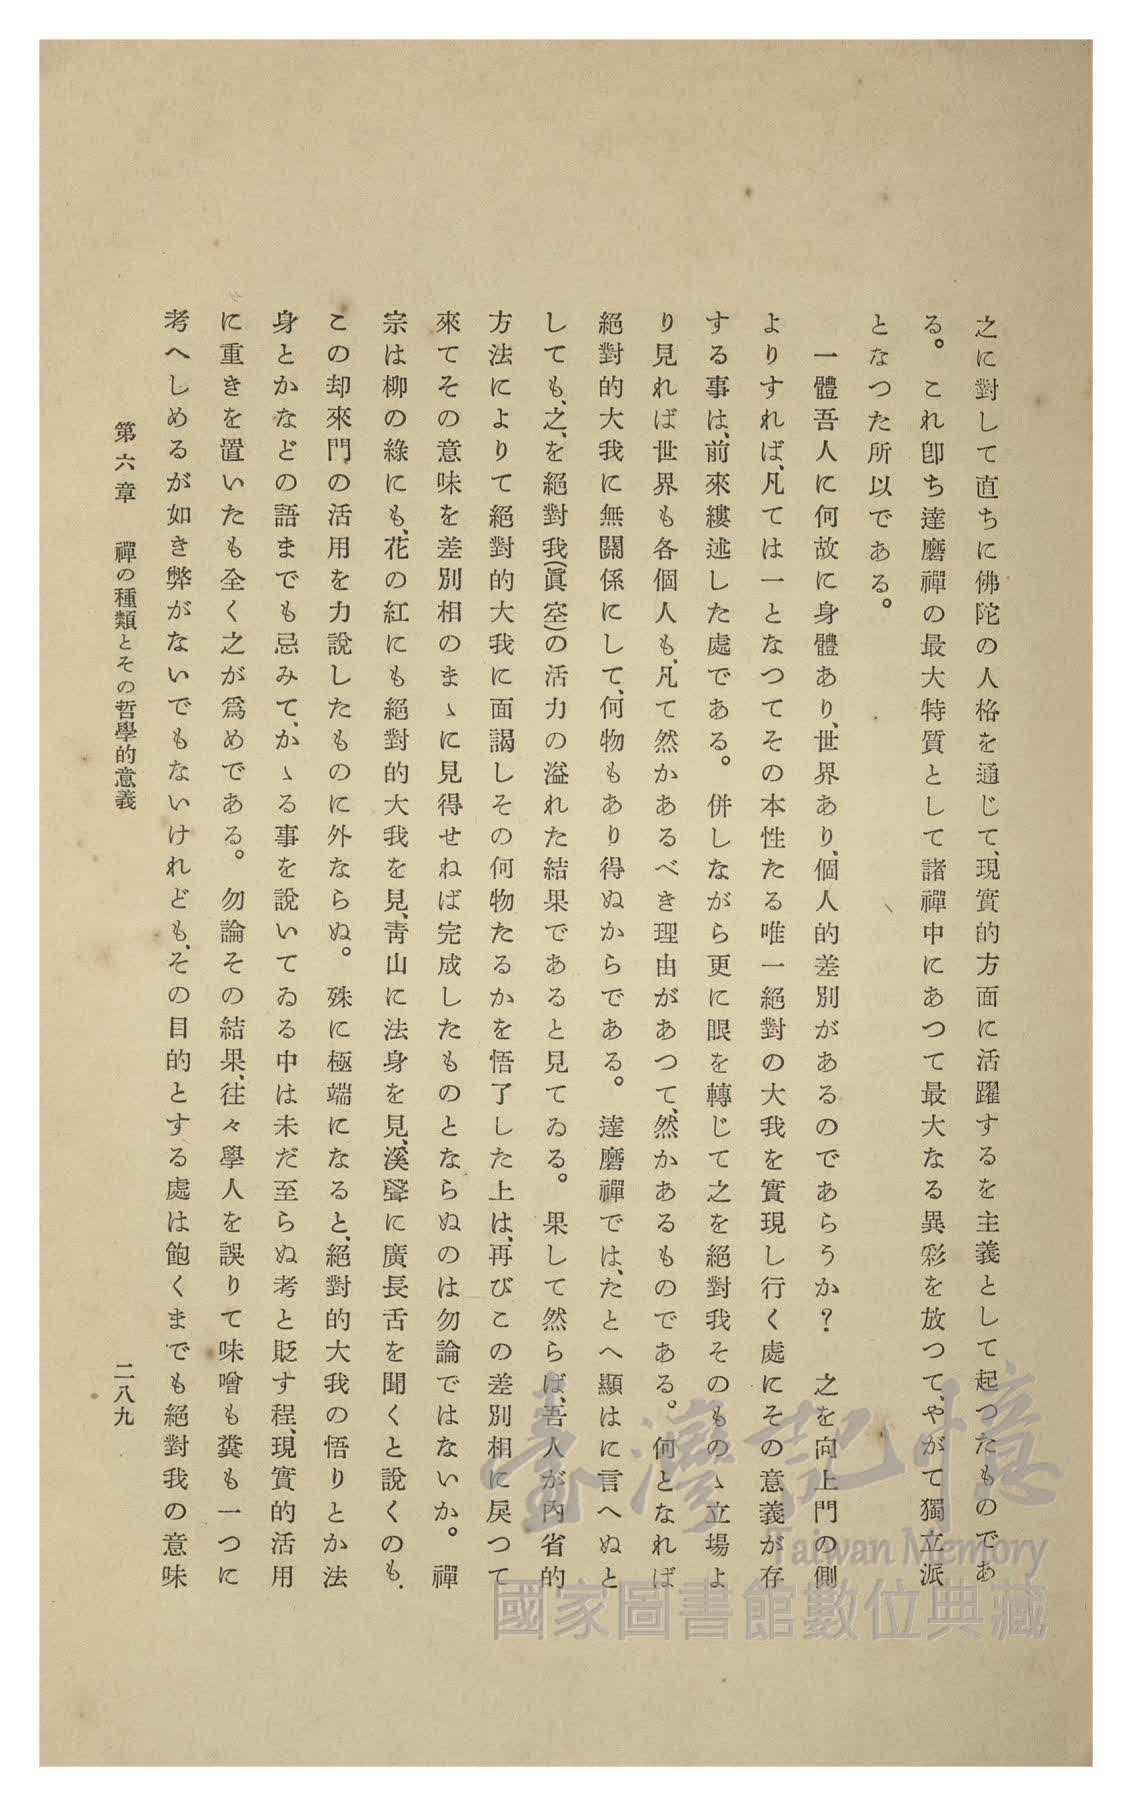 之に對して直ちに佛陀の人格を通じて、現實的方面に活躍するを主義として起つたものであ
る。これ卽ち達磨禪の最大特質として諸禪中にあつて最大なる異彩を放つて、やがて獨立派
となつた所以である。
一體吾人に何故に身體あり、世界あり、個人的差別があるのであらうか？　之を向上門の側
よりすれば、凡ては一となつてその本性たる唯一絕對の大我を實現し行く處にその意義が存
する事は、前來縷述した處である。併しながら更に眼を轉じて之を絕對我そのものゝ立場よ
り見れば世界も各個人も、凡て然かあるべき理由があつて、然かあるものである。何となれば
絕對的大我に無關係にして、何物もあり得ぬからである。達磨禪では、たとへ顯はに言へぬと
しても、之、を絕對我(眞空)の活力の溢れた結果であると見てゐる。果して然らば、吾人が內省的
方法によりて絕對的大我に面謁しその何物たるかを悟了した上は、再びこの差別相に戾つて
來てその意味を差別相のまゝに見得せねば完成したものとならぬのは勿論ではないか。禪
宗は柳の綠にも、花の紅にも絕對的大我を見、靑山に法身を見、溪聲に廣長舌を聞くと說くのも、
この却來門の活用を力說したものに外ならぬ。殊に極端になると、絕對的大我の悟りとか法
身とかなどの語までも忌みて、かゝる事を說いてゐる中は未だ至らぬ考と貶す程、現實的活用
に重きを置いたも全く之が爲めである。勿論その結果、往々學人を誤りて味噌も糞も一つに
考へしめるが如き弊がないでもないけれども、その目的とする處は飽くまでも絕對我の意味
第六章　禪の種類とその哲學的意義
二八九
臺灣記憶
Taiwan Memory
國家圖書館數位典藏